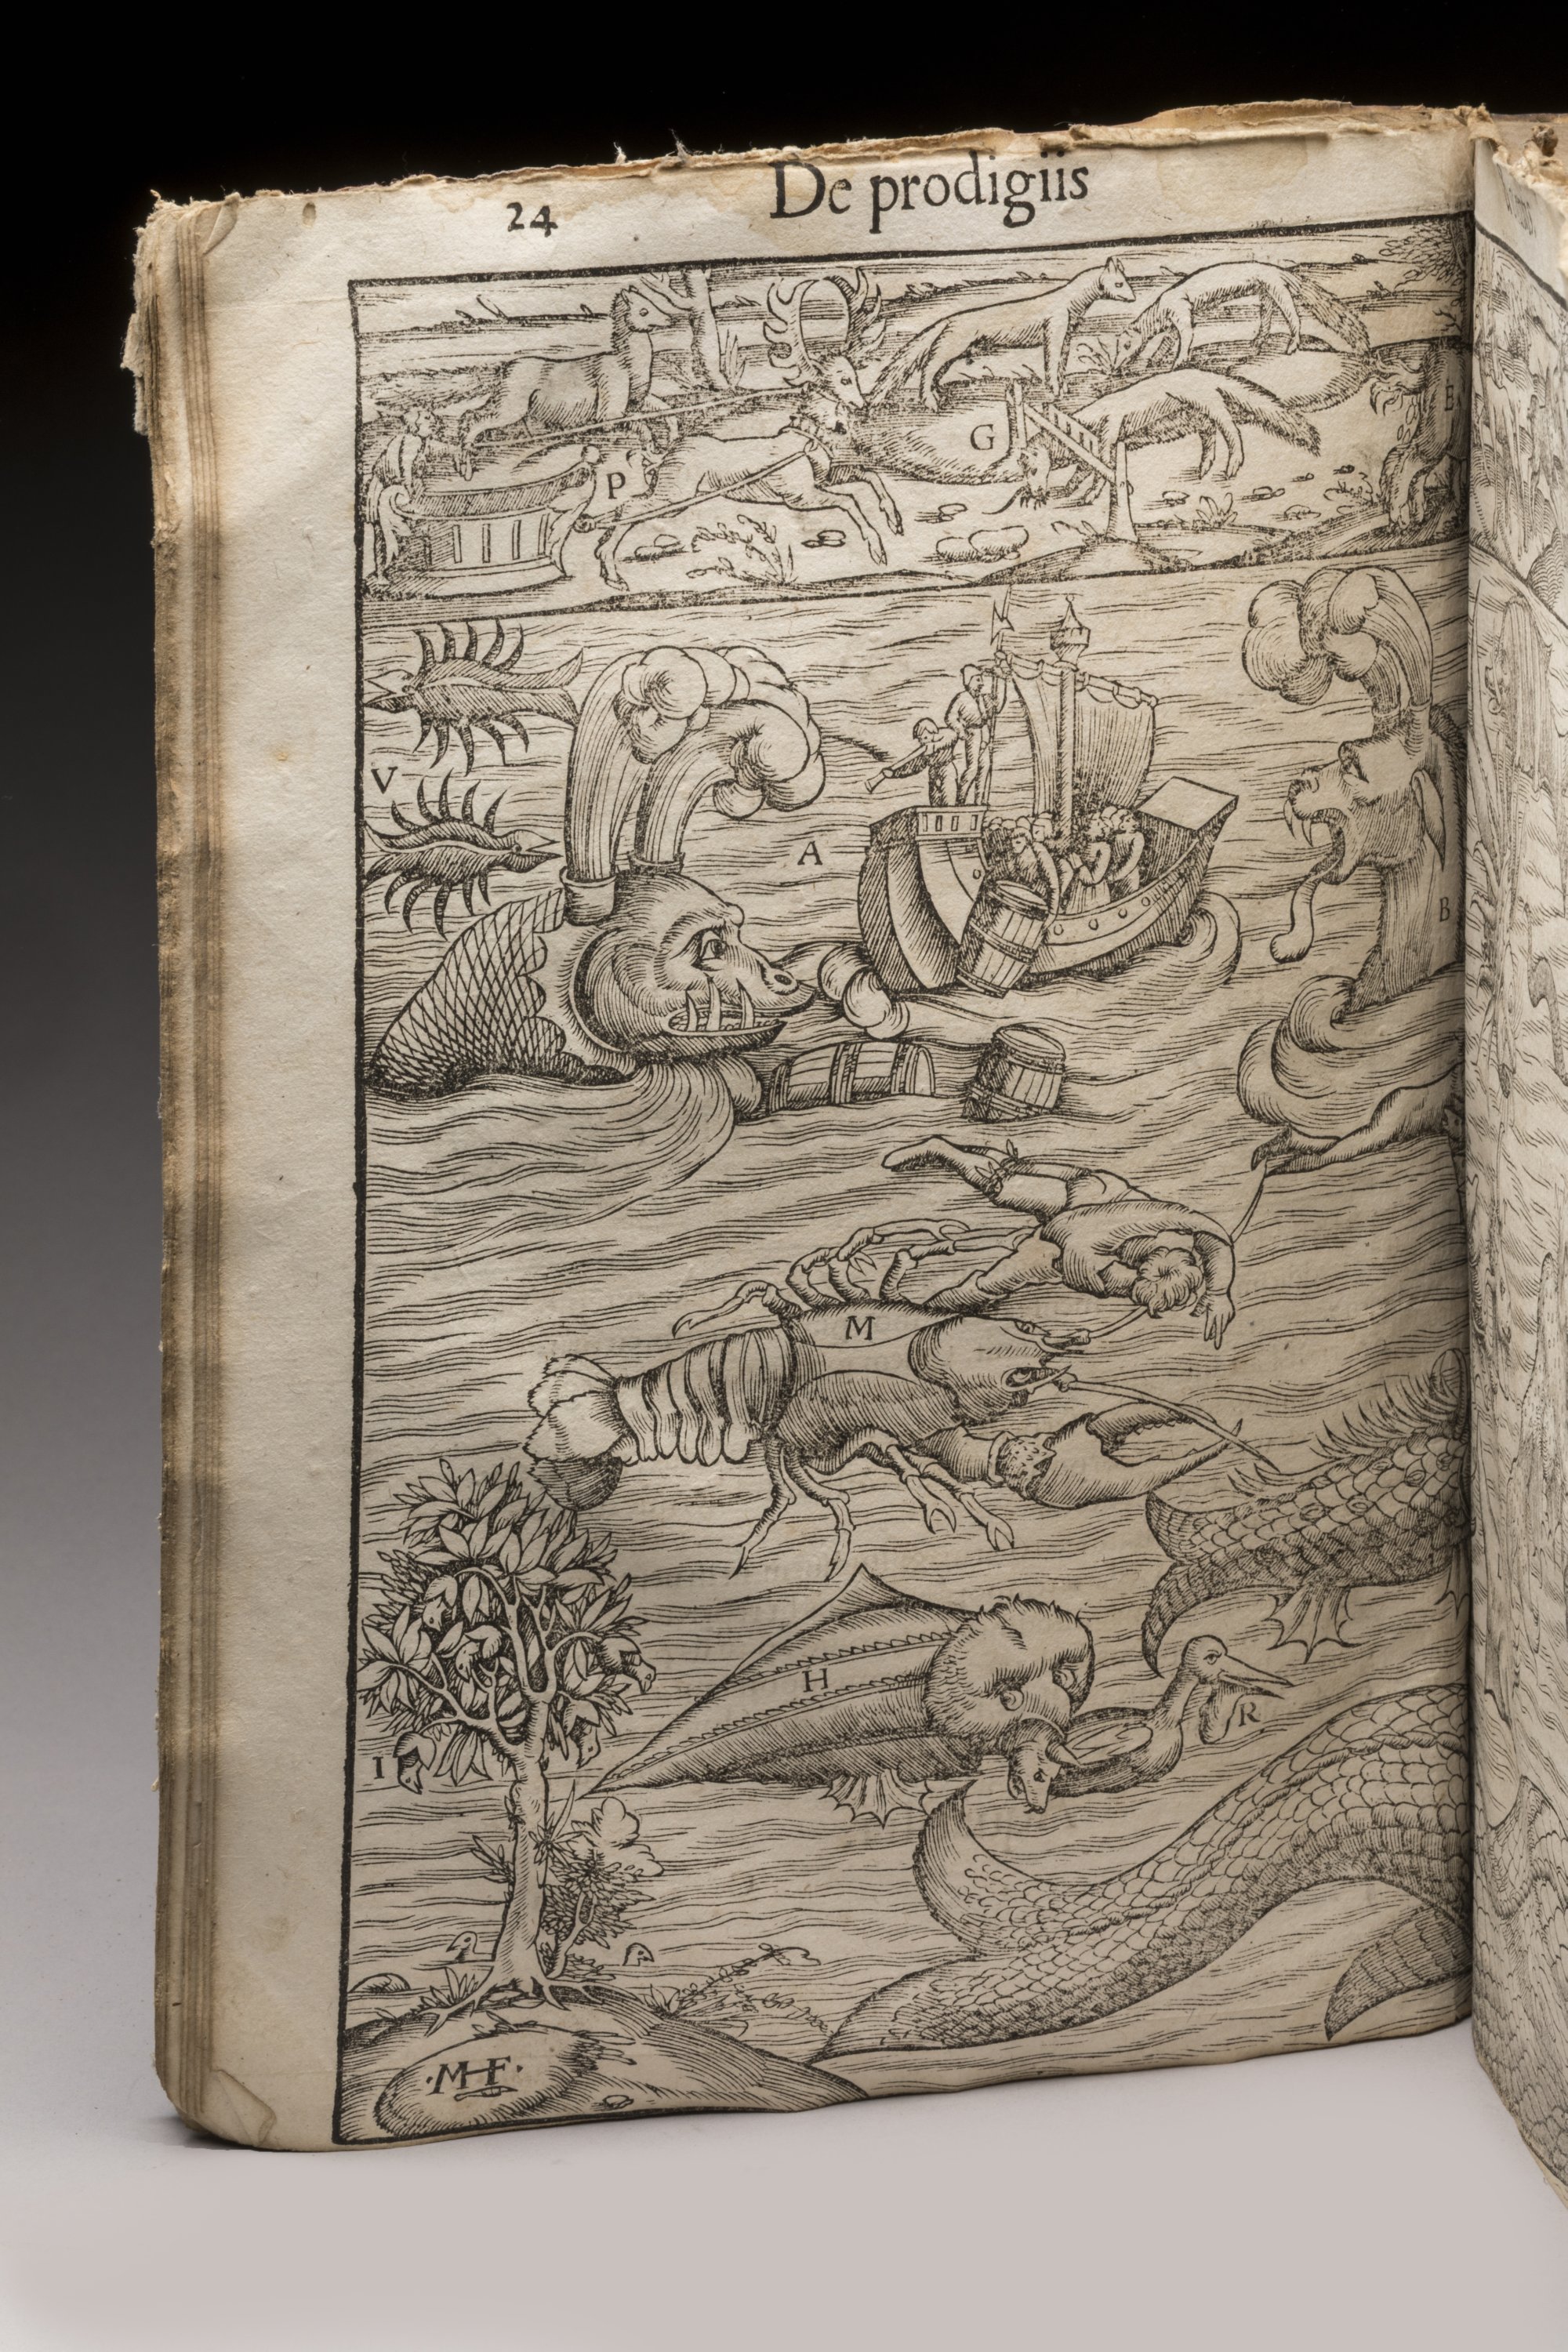 24 De prodigiis
P
G
E
V
A
B
M
H
R
I
·MHF·